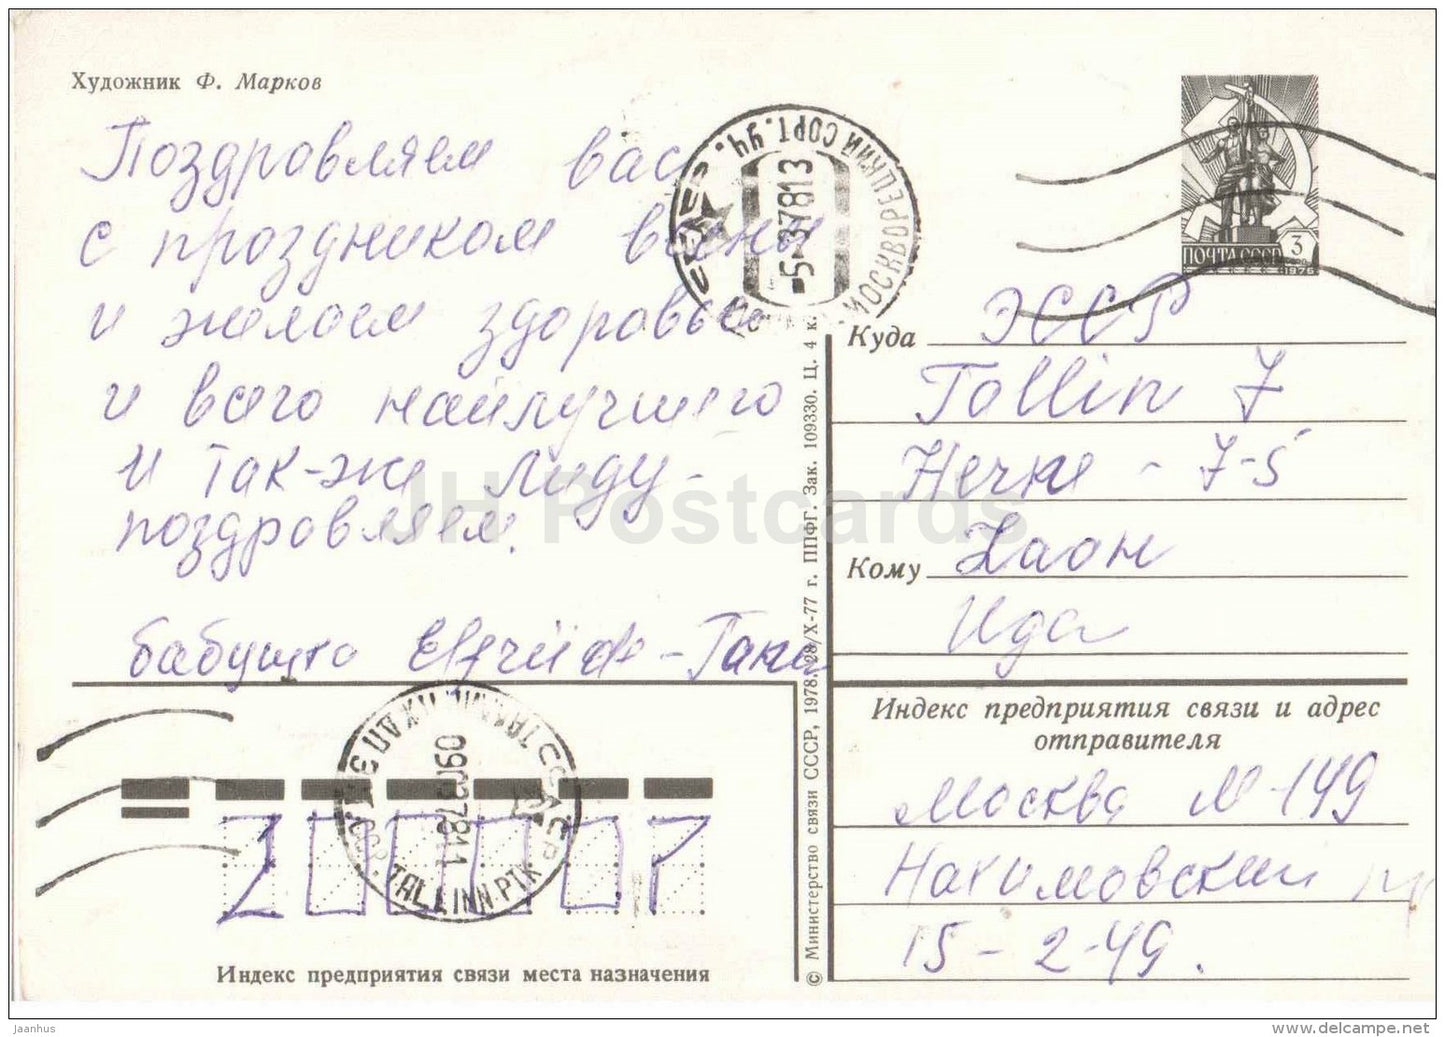 Художник Ф. Марков
Поздравляем вас
с праздником весны
и желаем здоровья
и всего наилучшего
и так-же Лиду-
поздравляем.
бабушка Elfriide-Таня
ПОЧТА СССР 3
1976
-5-37813
МОСКВОРЕЦКИЙ СОРТ. УЧ.
Куда ЭССР
Tallin 7
- 7-5
Кому Хаон
Ида
Индекс предприятия связи и адрес
отправителя
Москва М-149
Нахимовский пр
15-2-49.
09037811
TALLINN. PTK
200007
Индекс предприятия связи места назначения
© Министерство связи СССР, 1978. 28/X-77 г. ППФГ. Зак. 109330. Ц. 4 к.
JH Postcards
jaanhus
www.delcampe.net